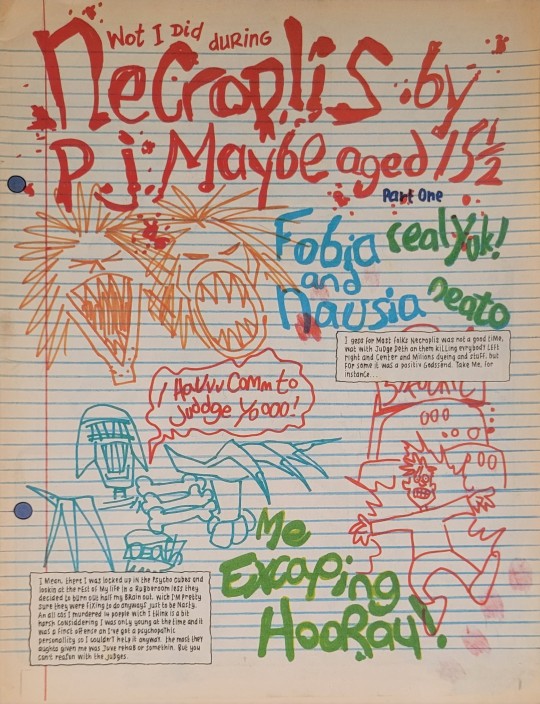 Wot I Did duRiNG
Necroplis by
P.J. Maybe aged 15½
Part One
Fobia real Yok!
and
Nausia Neato
I gess for Most folks Necroplis was not a good time,
wot with Judge Deth an them killing evrybody Left
right and Center and Milions dyeing and stuff, but
for some it was a positiv Godssend. Take Me, for
instance...
I Havvv Comm to
Juddge Yoooo!
DEATH
Me
Excaping
HooRay!
I Mean, there I was locked up in the Psycho cubes and
lookin at the rest of My life in a Rubberoom less they
decided to burn out half my brain out, wich I'm pretty
sure they were fixing to do anyways just to be Nasty.
An all cos I murdered 14 people wich I think is a bit
harsh considdering I was only young at the time and it
was a first offence an I've got a psychopathic
personality so I couldn't help it anyway. the most they
oughta given me was Juve rehab or somethin. But you
can't reason with the judges.